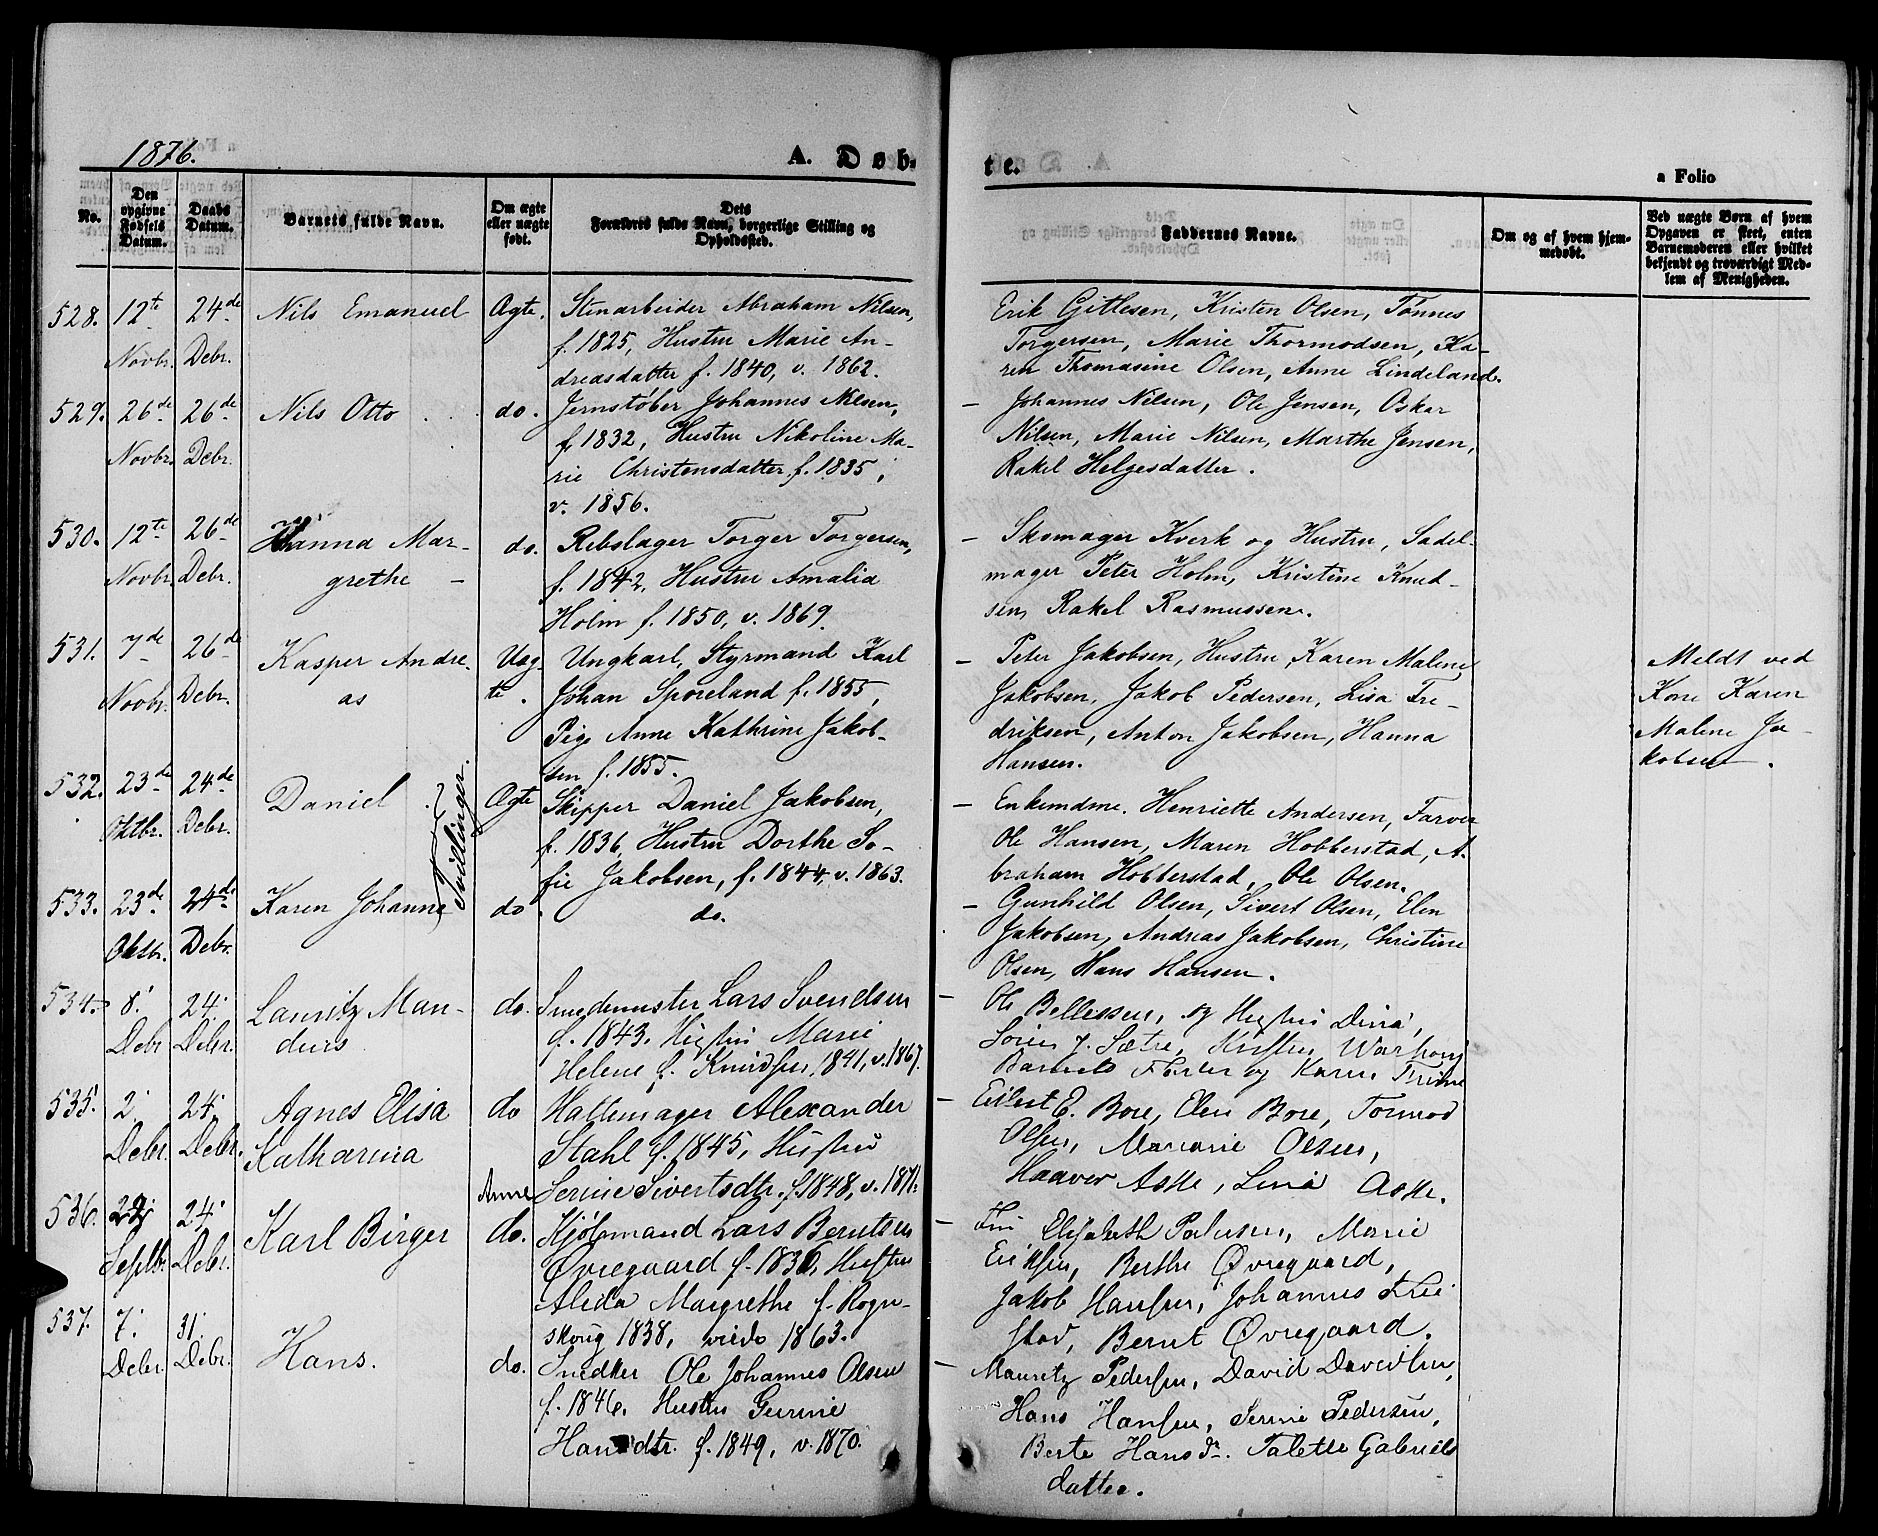 1876.
A. Døb-
te.
a Folio
No.
Den opgivne Fødsels Datum.
Daabs Datum.
Barnets fulde Navn.
Om ægte eller uægte født.
Dets Forældres fulde Navn, borgerlige Stilling og Opholdssted.
Faddernes Navne.
Om og af hvem hjemmedøbt.
Ved uægte Børn af hvem Opgaven er skeet, enten Barnemoderen eller hvilket bekjendt og troværdigt Medlem af Menigheden.
528. 12te Novbr. 24de Debr. Nils Emanuel Ægte.
Stenarbeider Abraham Nilsen,
f. 1825, Hustru Marie An-
dreasdatter f. 1840, v. 1862.
Erik Gitlesen, Kristen Olsen, Tønnes
Torgersen, Marie Thormodsen, Ka-
ren Thomasine Olsen, Anne Lindeland.
529. 26de Novbr. 26de Debr. Nils Otto do.
Jernstøber Johannes Nilsen,
f. 1832, Hustru Nikoline Ma-
rie Christensdatter f. 1835,
v. 1856.
Johannes Nilsen, Ole Jensen, Oskar
Nilsen, Marie Nilsen, Marthe Jensen,
Rakel Helgesdatter.
530. 12te Novbr. 26de Debr. Hanna Mar-
grethe do.
Rebslager Torger Torgersen,
f. 1842, Hustru Amalia
Holm f. 1850, v. 1869.
Skomager Kverk og Hustru, Sadel-
mager Peter Holm, Kristine Knud-
sen, Rakel Rasmussen.
531. 7de Novbr. 26de Debr. Kasper Andre-
as Uægte.
Ungkarl, Styrmand Karl
Johan Sporeland f. 1855,
Pige Anne Kathrine Jakob-
sen f. 1855.
Peter Jakobsen, Hustru Karen Malene
Jakobsen, Jakob Pedersen, Lisa Fre-
driksen, Anton Jakobsen, Hanna
Hansen.
Meldt ved
Kone Karen
Malene Ja-
kobsen.
532. 23de Oktbr. 24de Debr. Daniel Ægte
Tvillinger.
Skipper Daniel Jakobsen,
f. 1836, Hustru Dorthe So-
fie Jakobsen, f. 1844, v. 1863.
Enkemdme. Henriette Andersen, Farver
Ole Hansen, Maren Hobberstad, A-
braham Hobberstad, Ole Olsen.
533. 23de Oktbr. 24de Debr. Karen Johanne do.
do.
Gunhild Olsen, Sivert Olsen, Elen
Jakobsen, Andreas Jakobsen, Christine
Olsen, Hans Hansen.
534. 8. Debr 24. Debr. Lauritz Man-
dius do.
Smedemester Lars Svendsen
f. 1843. Hustru Marie
Helene f. Knudsen, 1841, v. 1867.
Ole Bellessen, og Hustru Dina,
Søren J. Sætre, Kirsten
og Karen Trine
535. 2. Debr. 24. Debr. Agnes Elisa
Katharina do
Hattemager Alexander
Stahl f. 1845, Hustru
Anne Serine Sivertsdtr. f. 1848, v. 1871.
Eilert E. Bore, Elen Bore, Tormod
Olsen, Olsen,
Haaver Aske, Lina Aske.
536. Septbr. 24. Debr. Karl Birger do.
Kjøbmand Lars Berntsen
Øvregaard f. 1836, Hustru
Alida Margrethe f. Rogn-
skoug 1838, viede 1863.
Elisabeth Paulsen, Marie
Eriksen, Berthe Øvregaard,
Jakob Hansen, Johannes
Bernt Øvregaard.
537. 7. Debr. 31. Debr. Hans. do.
Snedker Ole Johannes Olsen
f. 1846. Hustru Gurine
Hansdtr. f. 1849, v. 1870.
Mauritz Pedersen, David Davidsen,
Hans Hansen, Serine Pedersen,
Berte Hansdr. Talette Gabriels
datter.